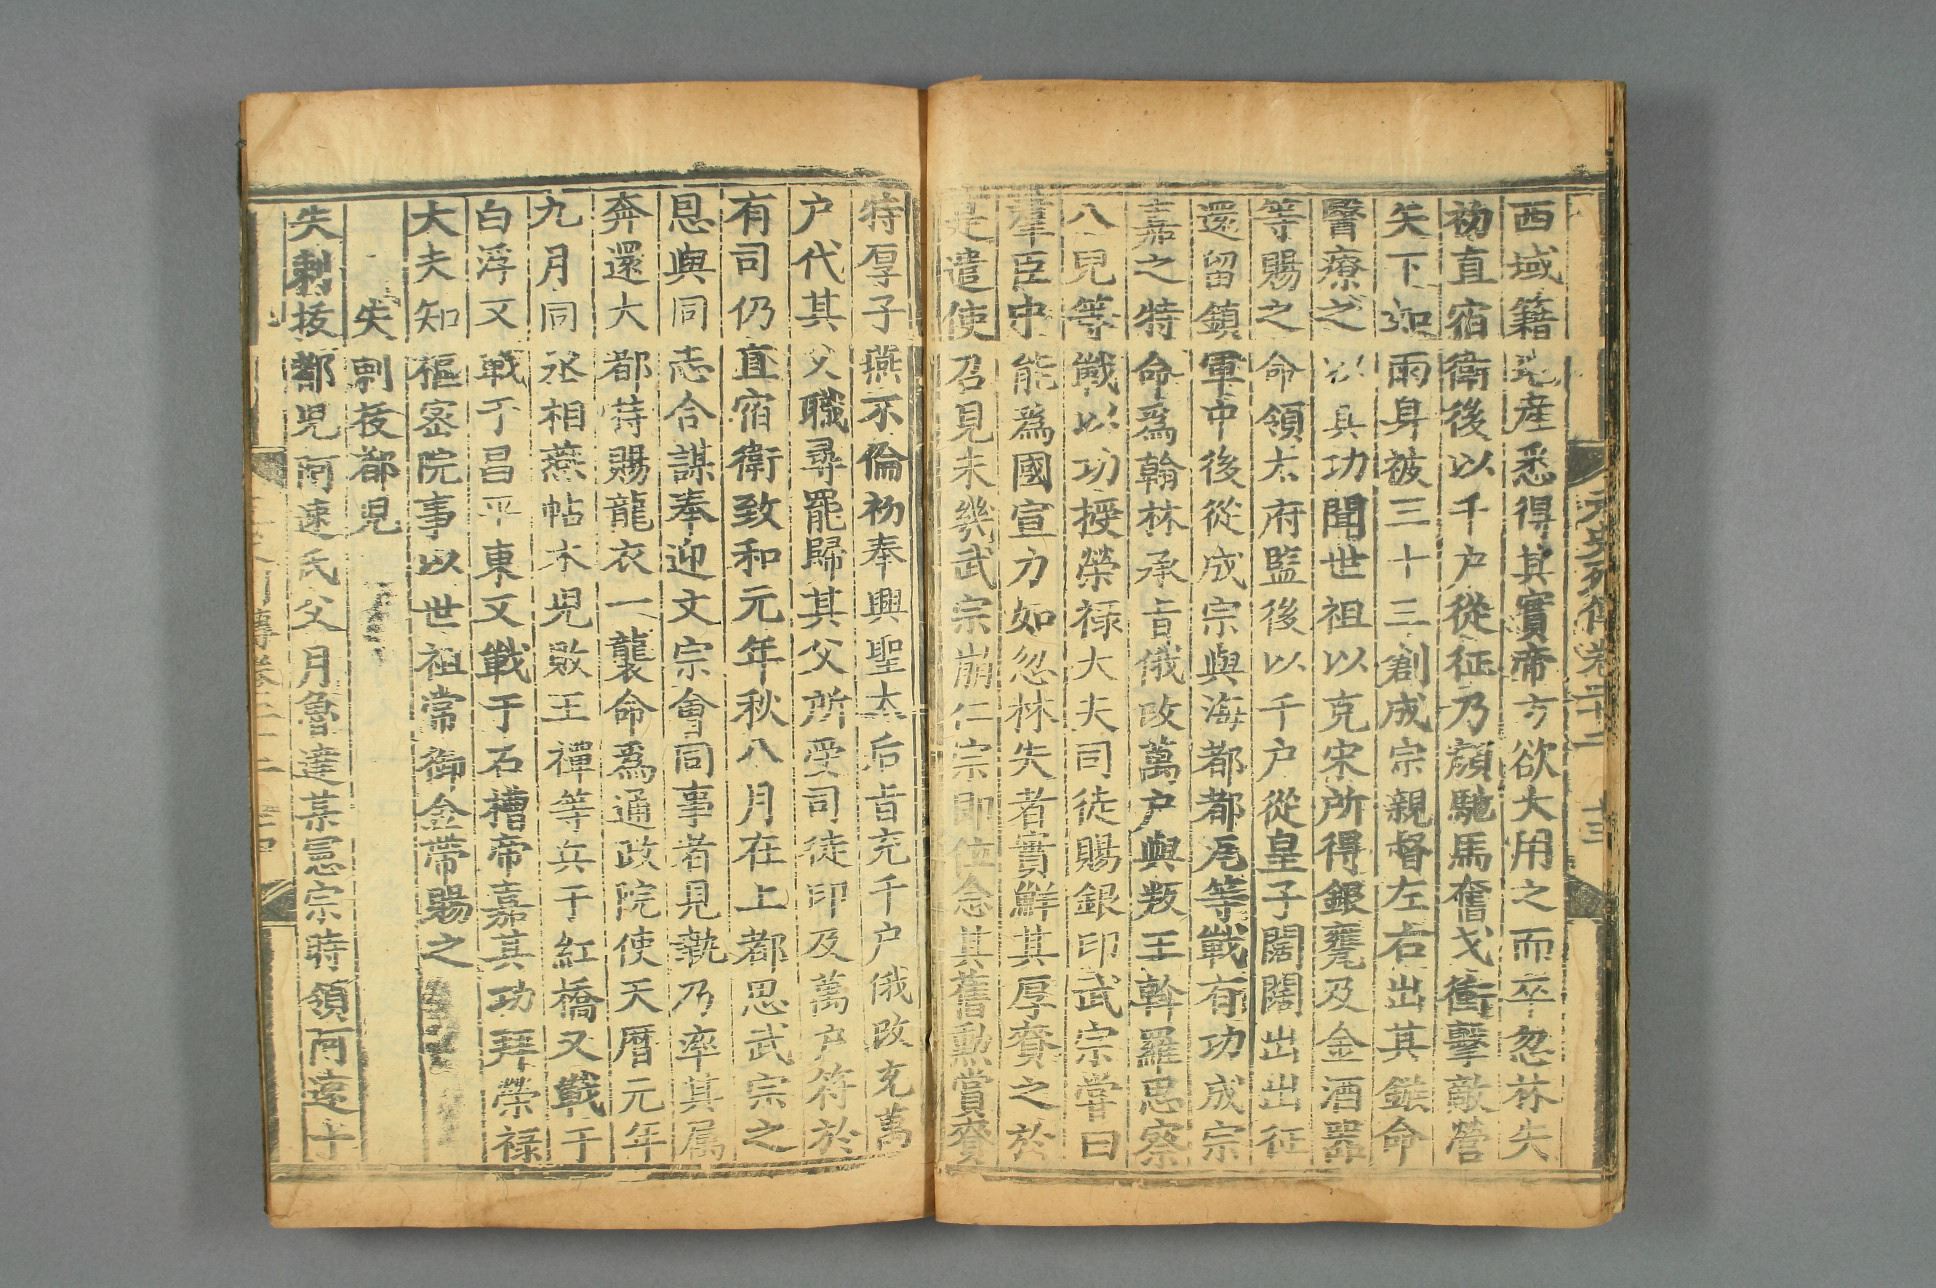 元史列傳卷二十二 十三
西域籍地産悉得其實帝方欲大用之而卒忽林失
初直宿衛後以千户從征乃顔馳馬奮戈衝擊敵營
矢下如雨身被三十三創成宗親督左右出其鏃命
醫療之以其功聞世祖以克宋所得銀甕及金酒器
等賜之命領太府監後以千户從皇子闊闊出出征
還留鎮軍中後從成宗與海都都瓦等戰有功成宗
嘉之特命爲翰林承旨俄改萬户與叛王斡羅思察
八兒等戰以功授榮禄大夫司徒賜銀印武宗嘗曰
羣臣中能爲國宣力如忽林失者實鮮其厚賚之於
是遣使召見未幾武宗崩仁宗即位念其舊勲賞賚
特厚子燕不倫初奉興聖太后旨充千户俄改充萬
户代其父職尋罷歸其父所受司徒印及萬户符於
有司仍直宿衛致和元年秋八月在上都思武宗之
恩與同志合謀奉迎文宗會同事者見執乃率其属
奔還大都特賜龍衣一襲命爲通政院使天曆元年
九月同丞相燕帖木児敗王禪等兵于紅橋又戰于
白浮又戰于昌平東又戰于石槽帝嘉其功拜榮禄
大夫知樞密院事以世祖常御金帶賜之
失剌拔都児
失剌拔都児阿速氏父月魯達某憲宗時領阿速十
列傳卷二十二 十四